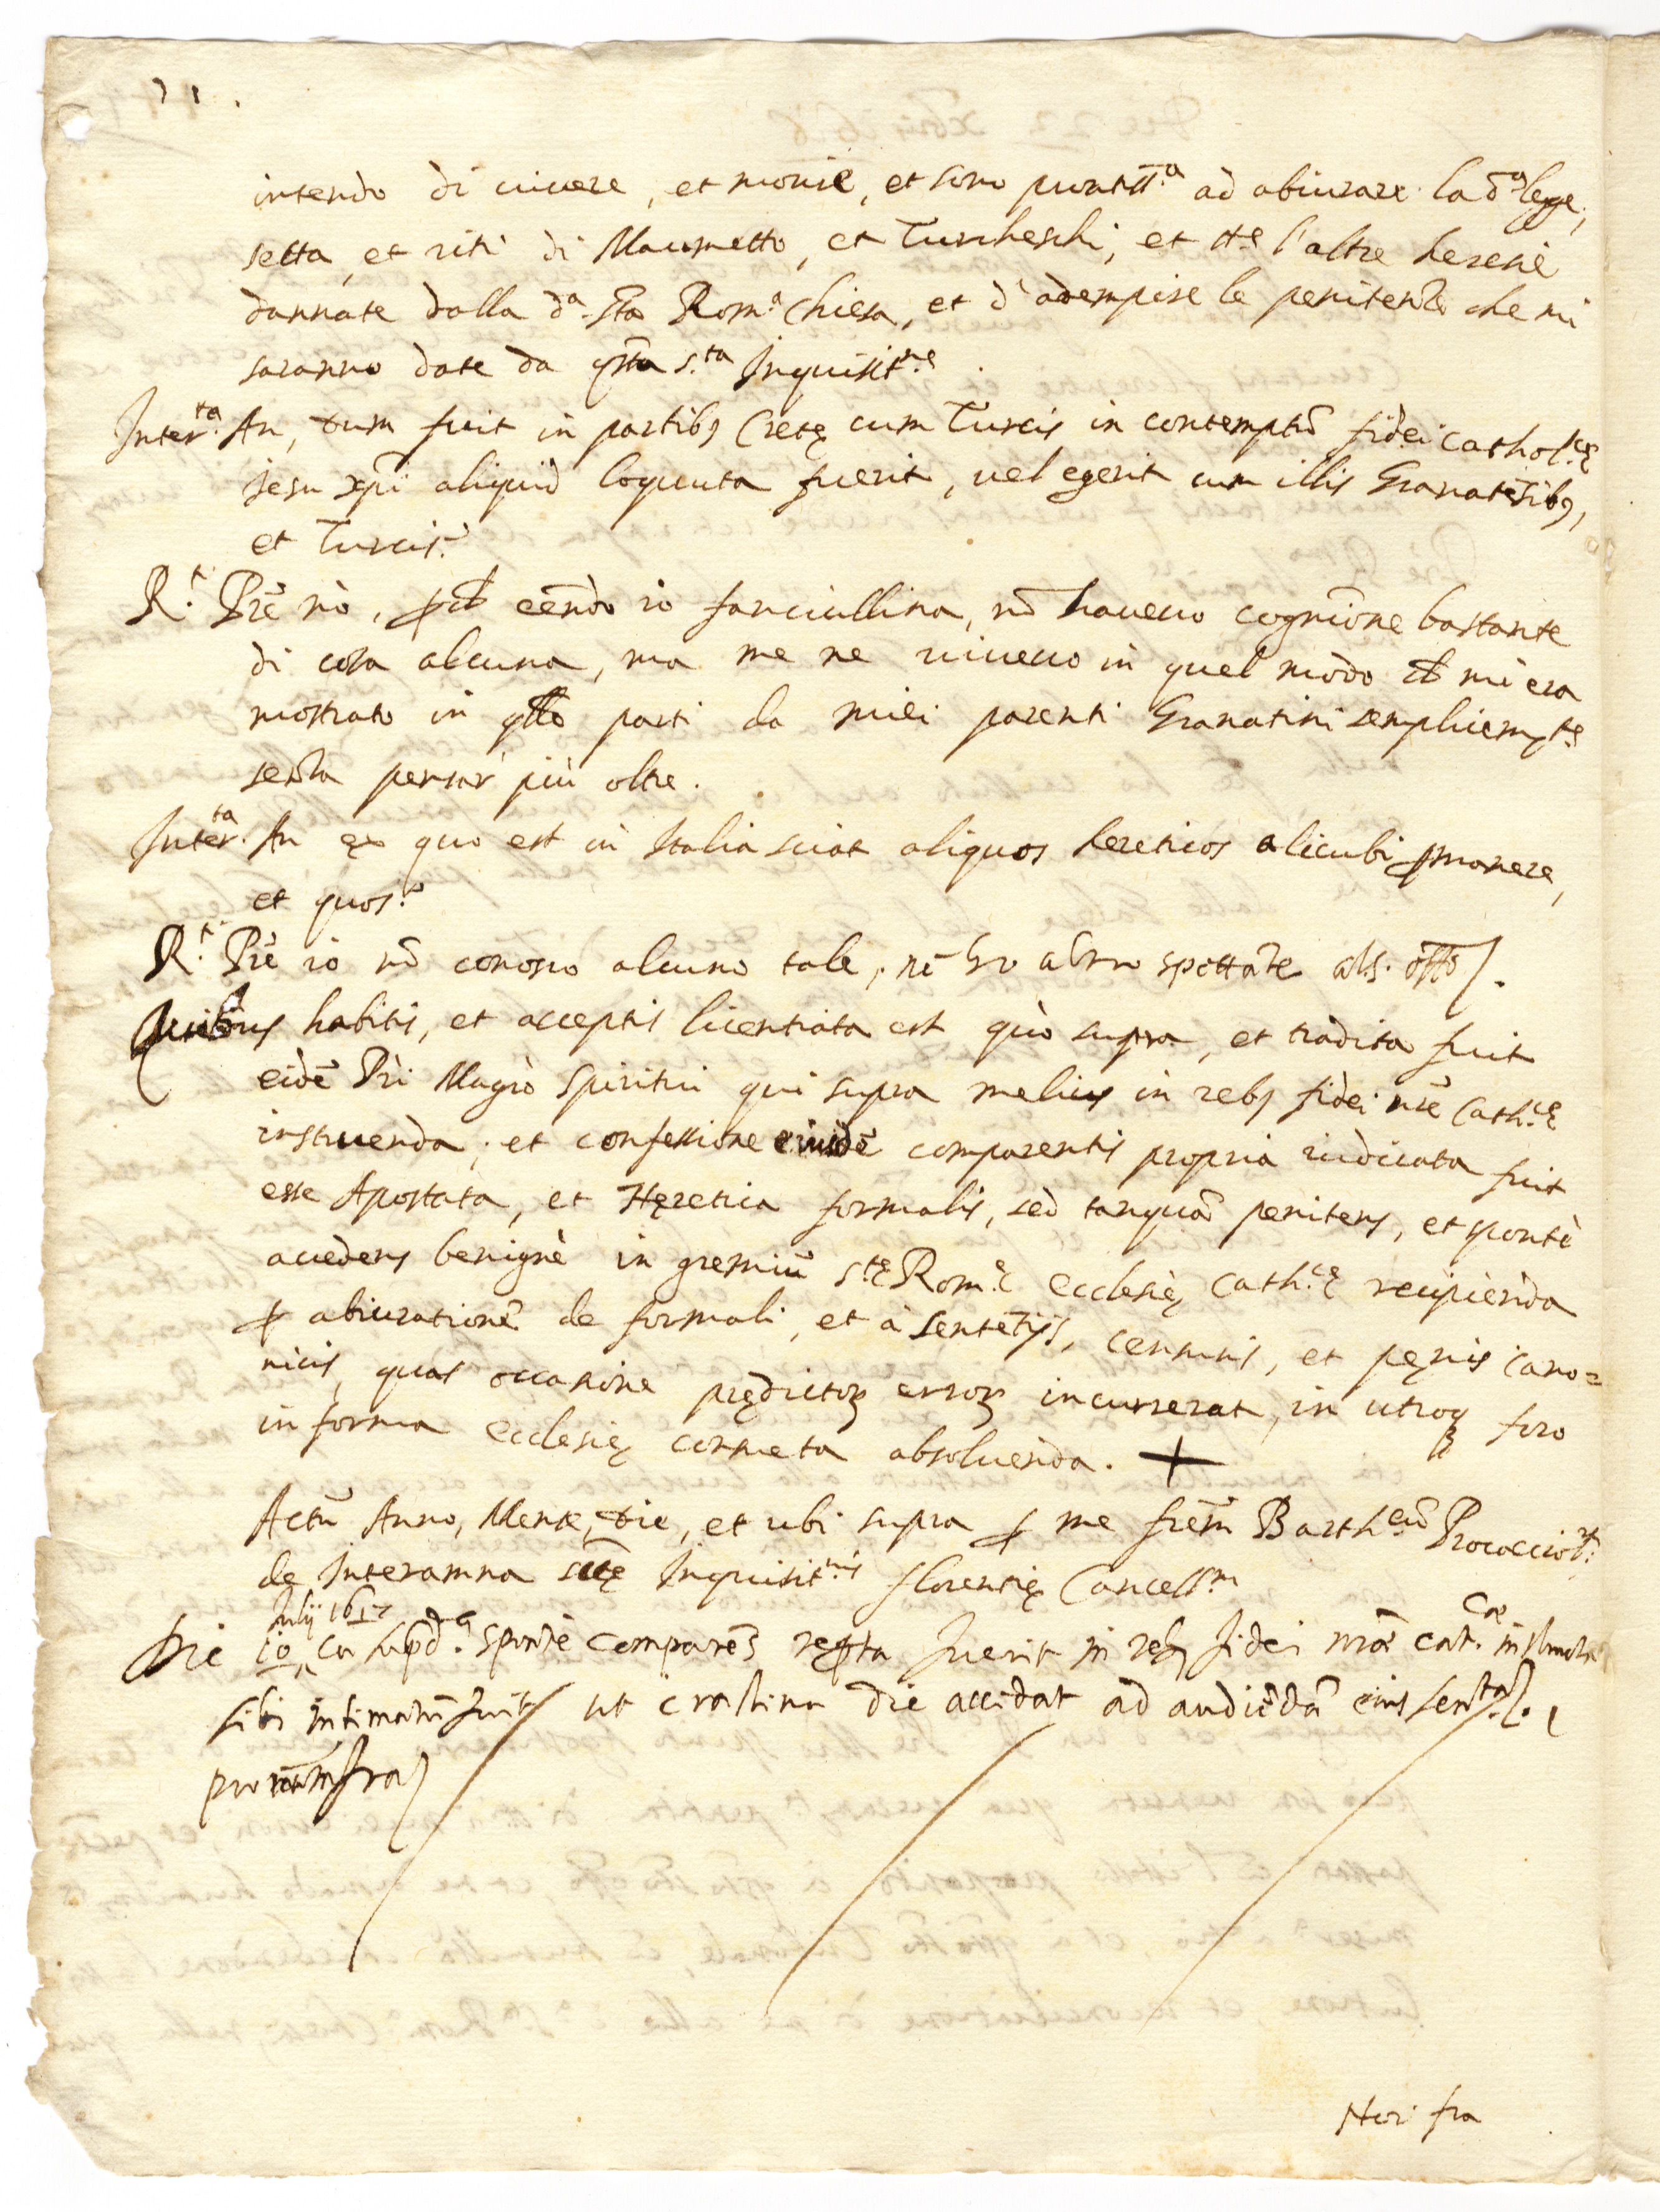 71.
intendo di vivere, et morire, et sono prontiss.ª ad abiurare la d.ª legge,
setta, et riti di Maumetto, et Turcheschi, et tt.e l'altre heresie
dannate dalla d.ª Sta Rom.ª Chiesa, et d'adempire le penitenze che mi
saranno date da qsta S.ta Inquisit.ne
Inter.ta An, dum fuit in partibq Cretę cum Turcis in contemptū fidei Cathol.cę
Jesu xpi aliquid loquuta fuerit, vel egerit cum illis Granatēsibq,
et Turcis?
R.t Prē nò, pch eēndo io fanciullina, nō havevo cogniōne bastante
di cosa alcuna, ma me ne vivevo in quel modo ch mi era
mostrato in qlle parti da miei parenti Granatini semplicem.te
senza pensar più oltre.
Inter.ta An ex quo est in Italia sciat aliquos hereticos alicubi pmanere,
et quos?
R.t Prē io nō conosco alcuno tale, nè ho altro spettāte al S. Offo.
Quibus habitis, et acceptis licentiata est quò supra, et tradita fuit
eidē Pri Magrò Spiritui qui supra melius in rebq fidei nrē Cath.cę
instruenda; et confessione eiusdē comparentis propria iudicata fuit
esse Apostata, et Hęretica formalis, sed tanquā penitens, et spontè
accedens benignè in gremiū S.tę Rom.ę Ecclesię Cath.cę recipiēda
p abiurationē de formali, et à sentētijs, censuris, et pęnis cano=
nicis, quas occasione prędictoꝝ erroꝝ incurrerat, in utroq foro
in forma Ecclesię consueta absolvenda. +
Actū Anno, Mense, die, et ubi supra p me frēm Barth.eū Procacciol.
de Interamna Sctę Inquisit.nis Florentię Cancell.m
Julij 1617
Die 10 Cu supd.ª spontè comparēs repta fuerit in rebq fidei nrā cat.cæ instructa
sibi intimatū fuit ut crastina die accedat ad audiēdā eius sen.ta
Hor fra